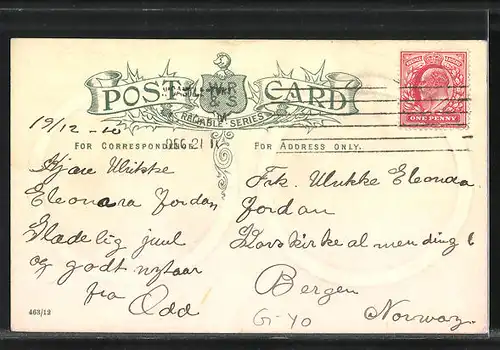 POST CARD
WR & S
RELIABLE SERIES
ONE PENNY
19/12-10
DEC 21 10
FOR CORRESPONDENCE
FOR ADDRESS ONLY.
Kjære Ulrikke
Eleonora Jordan
Glædelig juul
og godt nytaar
fra
Odd
Frk. Ulrikke Eleonora
Jordan
Korskirkealmending 6
Bergen
Norway.
Gi-40
463/12